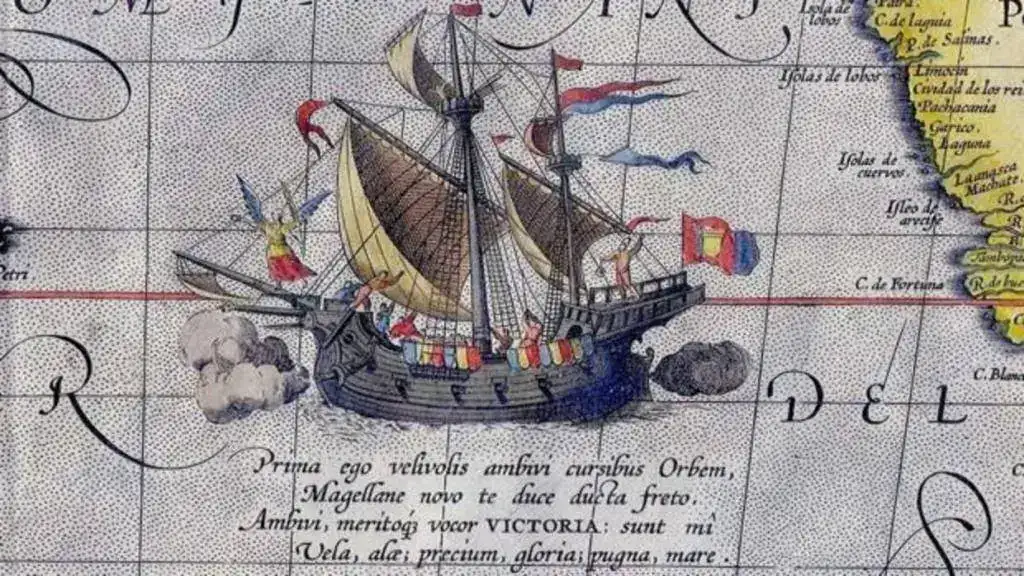 Isola de lobos
C. de laguia
P. de Salinas.
Isolas de lobos
Limocin
Cividad de los rei
Pachacama
Garico.
Laguna
Isolas de cuervos
Machate.
Isleo de
Petri
C. de Fortuna
C. Blanc
R DEL
Prima ego velivolis ambivi cursibus Orbem,
Magellane novo te duce ducta freto.
Ambivi, meritoqꝫ vocor VICTORIA: sunt mî
Vela, alæ; precium, gloria; pugna, mare.